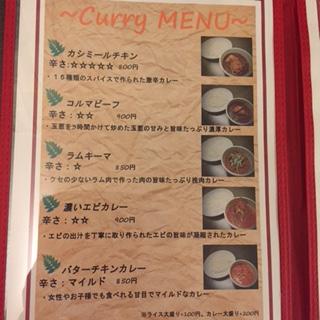 ~Curry MENU~
カシミールチキン
辛さ:☆☆☆☆☆ 800円
・15種類のスパイスで作られた激辛カレー
コルマビーフ
辛さ:☆☆ 900円
・玉葱を3時間かけて炒めた玉葱の甘みと旨味たっぷり濃厚カレー
ラムキーマ
辛さ:☆ 850円
・クセの少ないラム肉で作った肉の旨味たっぷり挽肉カレー
濃いエビカレー
辛さ:☆☆ 900円
・エビの出汁を丁寧に取り作られたエビの旨味が凝縮されたカレー
バターチキンカレー
辛さ:マイルド 850円
・女性やお子様でも食べれる甘目でマイルドなカレー
※ライス大盛り+100円、カレー大盛り+300円